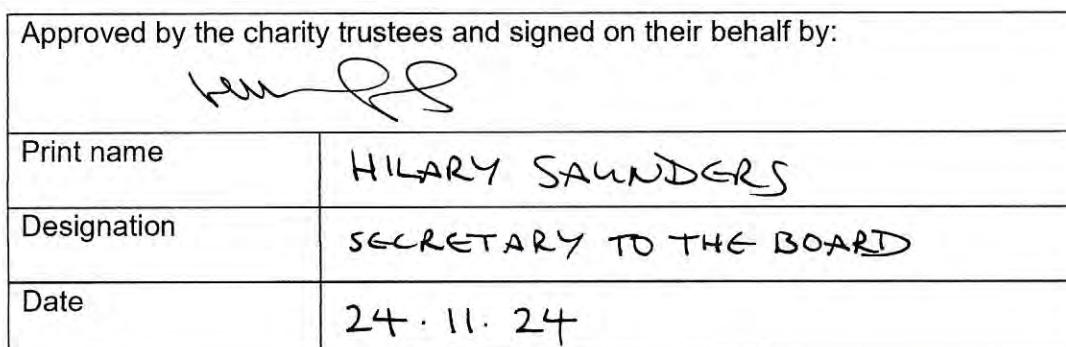 Approved by the charity trustees and signed on their behalf by:
Print name
HILARY SAUNDERS
Designation
SECRETARY TO THE BOARD
Date
24.11.24